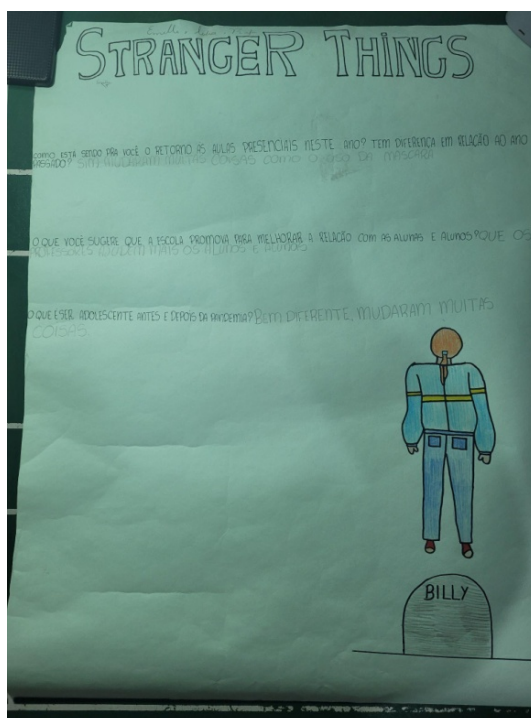 STRANGER THINGS
COMO ESTÁ SENDO PRA VOCÊ O RETORNO AS AULAS PRESENCIAIS NESTE ANO? TEM DIFERENÇA EM RELAÇÃO AO ANO
PASSADO? SIM, MUDARAM MUITAS COISAS COMO O USO DA MÁSCARA
O QUE VOCÊ SUGERE QUE A ESCOLA PROMOVA PARA MELHORAR A RELAÇÃO COM AS ALUNAS E ALUNOS? QUE OS
PROFESSORES MAIS OS ALUNOS E ALUNAS
O QUE É SER ADOLESCENTE ANTES E DEPOIS DA PANDEMIA? BEM DIFRENTE, MUDARAM MUITAS
COISAS
BILLY